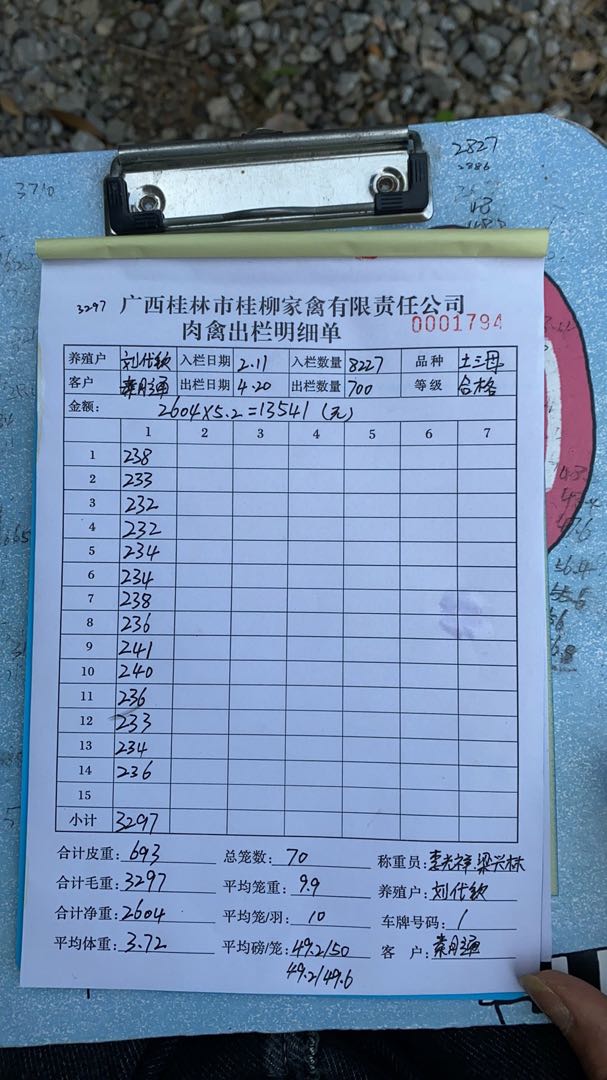 3710
2827
2886
3297 广西桂林市桂柳家禽有限责任公司
肉禽出栏明细单 0001794
养殖户 刘代钦 入栏日期 2.11 入栏数量 8227 品种 土三母
客户 出栏日期 4.20 出栏数量 700 等级 合格
金额: 2604×5.2=13541 (元)
1 2 3 4 5 6 7
1 238
2 233
3 232
4 232
5 234
6 234
7 238
8 236
9 241
10 240
11 236
12 233
13 234
14 236
15
小计 3297
合计皮重: 693 总笼数: 70 称重员: 李光祥 梁兴林
合计毛重: 3297 平均笼重: 9.9 养殖户: 刘代钦
合计净重: 2604 平均笼/羽: 10 车牌号码: /
平均体重: 3.72 平均磅/笼: 49.2/50 客 户:
49.2/49.6